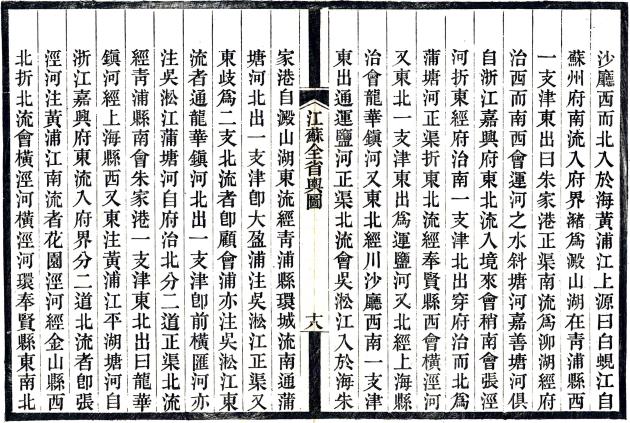 沙廳西而北入於海黃浦江上源曰白蜆江自
蘇州府南流入府界緒為澱山湖在青浦縣西
一支津東出曰朱家港正渠南流為泖湖經府
治西而南西會運河之水斜塘河嘉善塘河俱
自浙江嘉興府東北流入境來會稍南會張涇
河折東經府治南一支津北出穿府治而北為
蒲塘河正渠折東北流經奉賢縣西會橫涇河
又東北一支津東出為運鹽河又北經上海縣
治會龍華鎮河又東北經川沙廳西南一支津
東出通運鹽河正渠北流會吳淞江入於海朱
江蘇全省輿圖
十八
家港自澱山湖東流經青浦縣環城流南通蒲
塘河北出一支津卽大盈浦注吳淞江正渠又
東歧為二支北流者卽顧會浦亦注吳淞江東
流者通龍華鎮河北出一支津卽前橫匯河亦
注吳淞江蒲塘河自府治北分二道正渠北流
經靑浦縣南會朱家港一支津東北出曰龍華
鎮河經上海縣西又東注黃浦江平湖塘河自
浙江嘉興府東流入府界分二道北流者卽張
涇河注黃浦江南流者花園涇河經金山縣西
北折北流會橫涇河橫涇河環奉賢縣東南北